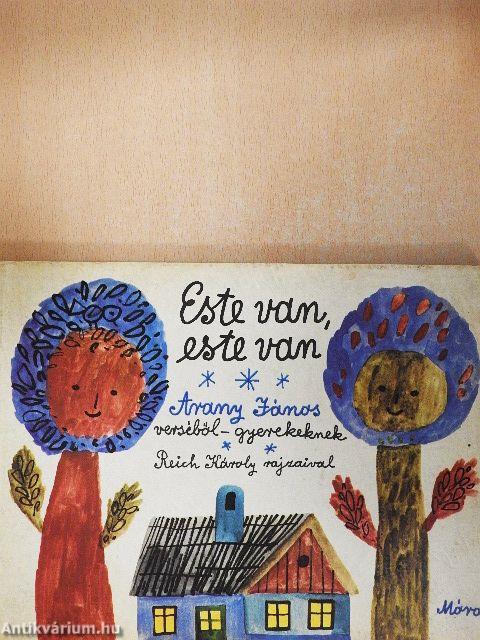 Este van,
este van
Arany János
verséből - gyerekeknek
Reich Károly rajzaival
Móra
Antikvárium.hu